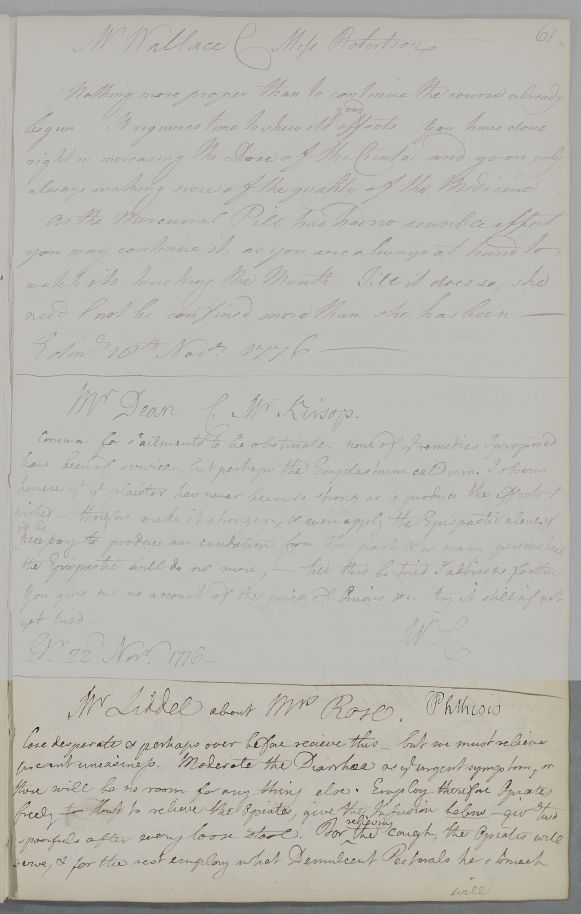 61
Mr Wallace C Miss Robertson
Nothing more proper than to continue the course already
good
begun. It requires time to shew its effects. You have done
right in increasing the Dose of the Cicuta and go on only
always making sure of the quality of the Medicine
As the Mercurial Pill has had no sensible effect
you may continue it, as you are always at hand to
watch its touching the Mouth. Till it does so, she
need not be confined more than she has been
Edinr 18th Novr 1776
Mr Dean C. Mr Kirsop.
Common for s. ailments to be obstinate. none of ye remedies I proposed
have been of service, but perhaps the Emplastrum calidum. I observe
however yt ye plaister has never been so strong as to produce the effects I
wished - therefore make it stronger, & even apply the Epispastic alone, if
it be
necessary to produce an exudation from the part & in many persons
the Epispastic will do no more, - till this be tried I advise no farther
You give me no account of the juice of &c. try it still if not
yet tried.
W. C.
Edr 22d Novr 1776
Mr Liddel about Mrs Rose. Phthisis
Case desperate & perhaps over before recieve this - but we must relieve
present uneasiness. Moderate the Diarrhœa as ye urgent symptom, or
there will be no room for any thing else. Employ therefore Opiates
freely to relieve the Opiates, give the Infusion below - give two
relieving
spoonfuls after every loose stool. For the cough, the Opiates will
serve, & for the rest employ what Demulcent Pectorals her stomach
will